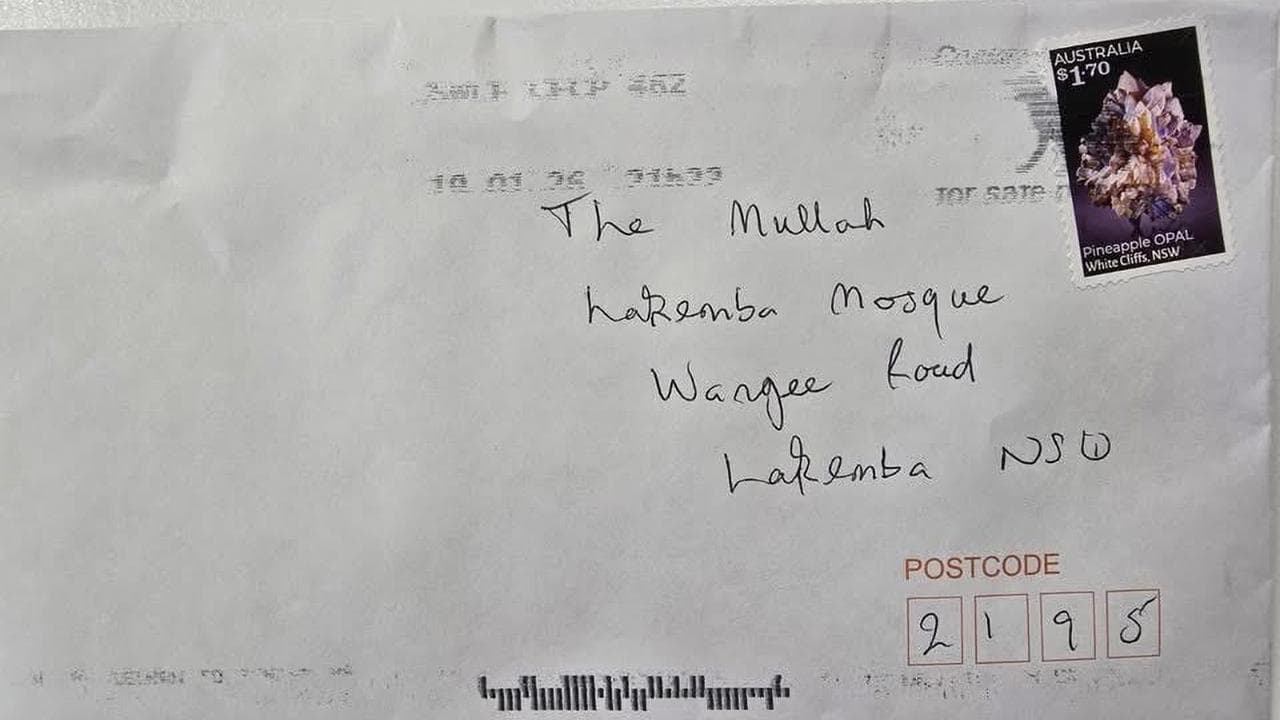 AUSTRALIA
$1.70
Pineapple OPAL
White Cliffs, NSW
21h33
for sale
The Mullah
Lakemba Mosque
Wangee Road
Lakemba NSW
POSTCODE
2195